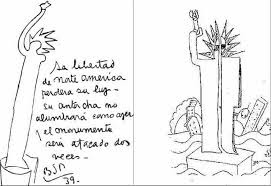 La libertad
de norte america
perdera su luz -
su antorcha no
alumbrará como ayer
el monumento
será atacado dos
veces -
BSP
39.